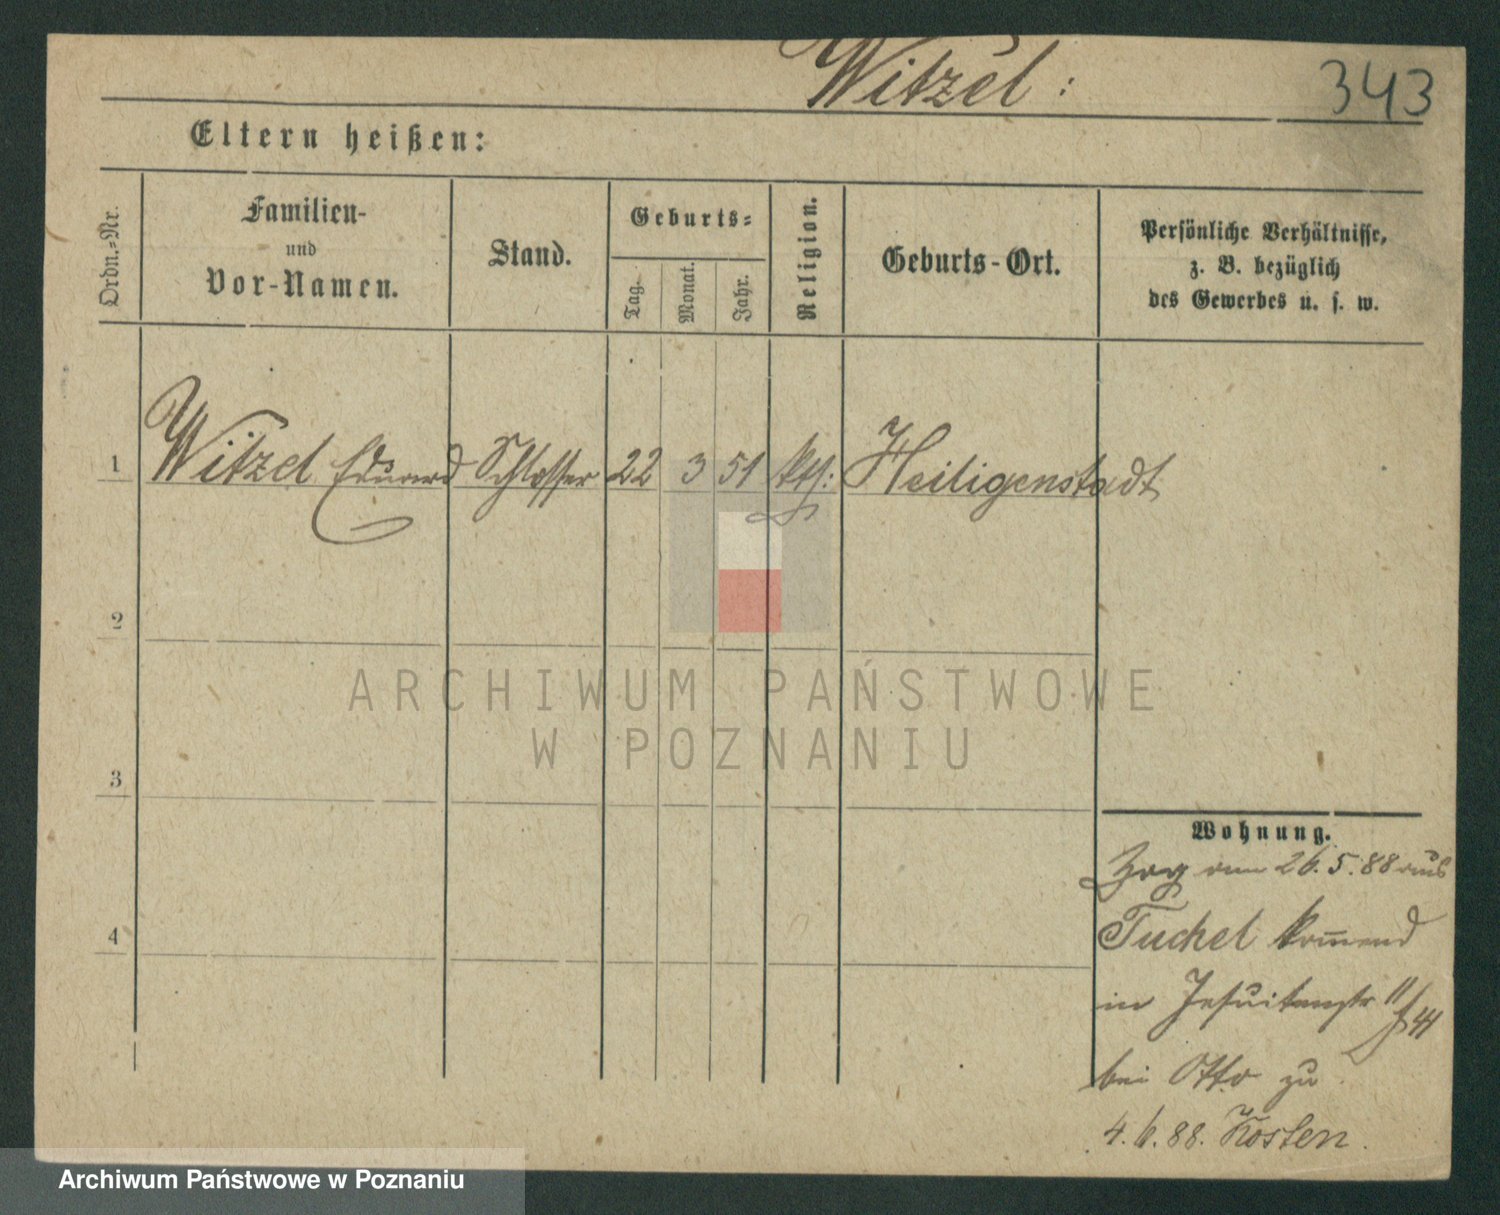 Witzel :
343
Eltern heißen:
Ordn.-Nr.
Familien-
und
Vor-Namen.
Stand.
Geburts-
Tag.
Monat.
Jahr.
Religion.
Geburts-Ort.
Persönliche Verhältnisse,
z. B. bezüglich
des Gewerbes u. s. w.
1 Witzel Eduard Schlosser 22 3 51 kth: Heiligenstadt
2
3
4
Wohnung.
Zog am 26.5.88 aus
Tuchel komend
in Jesuitenstr 11
bei Otto zu
4.6.88. Kosten.
ARCHIWUM PAŃSTWOWE
W POZNANIU
Archiwum Państwowe w Poznaniu